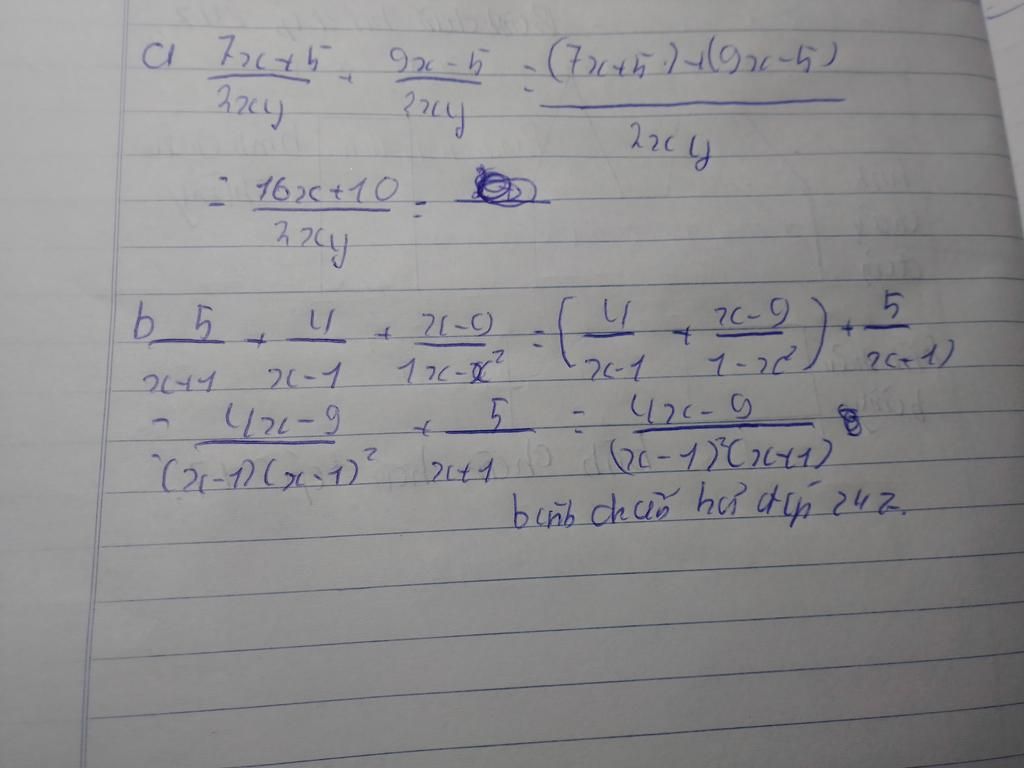 a 7x+5/2xy + 9x-5/2xy = (7x+5)+(9x-5)/2xy
= 16x+10/2xy =
b 5/x+1 + 4/x-1 + x-9/1x-x² = (4/x-1 + x-9/1-x²) + 5/x+1)
= 4x-9/(x-1)(x-1)² + 5/x+1 = 4x-9/(x-1)²(x+1)